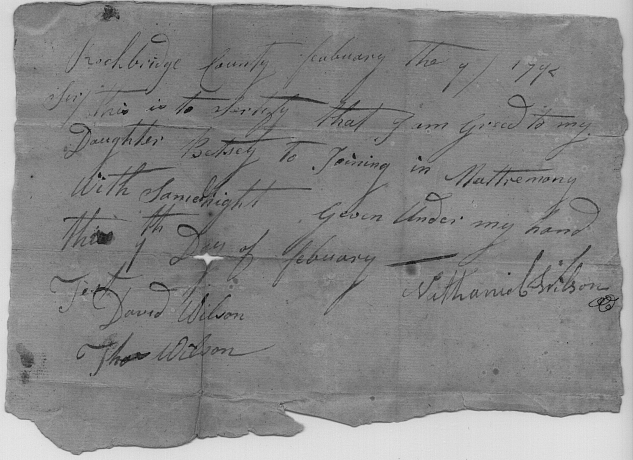 Rockbridge County febuary the 9/ 1792
Sir this is to sertefy that I am Greed to my
Daughter Betsey to Joining in Mattremony
With Given Under my hand
this Day of febuary
Test Nathaniel Wilson
David Wilson
Thos Wilson